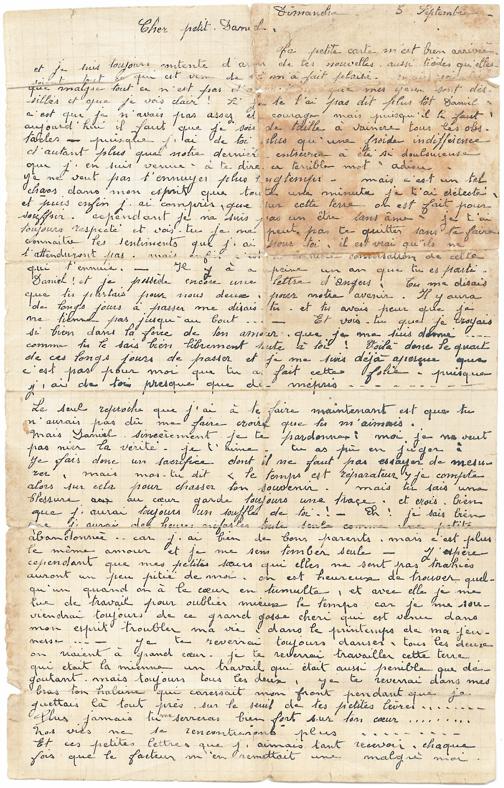 Dimanche 5 Septembre
Cher petit Daniel.
Ta petite carte m'est bien arrivée
et je suis toujours contente d'avoir de tes nouvelles. aussi tièdes qu'elles
soient tout ce qui est venu de toi m'a fait plaisir.
que malgré tout ce n'est pas que mes yeux sont des-
sillés et que je vois clair! Si je te l'ai pas dit plus tôt Daniel
c'est que je n'avais pas assez de courage, mais puisqu'il le faut!
aujourd'hui il faut que je sois de taille à vaincre tous les obs-
tacles — puisque j'ai de toi plus qu'une froide indifférence
d'autant plus que notre dernière entrevue a été si douloureuse
que j'en suis venue à te dire ce terrible mot "adieu"
Je ne veut pas t'ennuyer plus longtemps — mais c'est un tel
chaos dans mon esprit que toute une minute je t'ai détesté,
et puis enfin j'ai compris, que sur cette terre on est fait pour
souffrir. Cependant je ne suis pas un être sans âme je t'ai
toujours respecté et vois-tu je ne peut pas te quitter sans te faire
connaître les sentiments que j'ai pour toi, il est vrai qu'ils ne
t'attendriront pas. mais conversation de celle
qui t'ennuie — Il y a à peine un an que tu es parti
Daniel! et je possède encore une lettre d'Angers! Tu me disais
que tu partais pour nous deux. pour notre avenir. Il y aura
de longs jours à passer me disais tu et tu avais peur que je
ne tienne pas jusqu'au bout — Et vois-tu quoi, je croyais
si bien dans la force de ton amour. que je me suis donné.
comme tu le sais bien librement toute à toi! Voilà donc le quart
de ces longs jours de passer et je me suis déjà aperçue que
c'est pas pour moi que tu a fait cette folie. puisque
j'ai de toi presque que du mépris
Le seul reproche que j'ai à te faire maintenant est que tu
n'aurais pas dû me faire croire que tu m'aimais.
mais Daniel. sincèrement je te pardonne! moi, je ne veut
pas nier la vérité. je t'aime. tu as pu en juger à
Je fais donc un sacrifice dont il ne faut pas essayer de mesu-
rer, mais moi tu dit "le temps est réparateur" j'y compte
alors sur cela pour chasser ton souvenir. mais tu sais une
blessure au cœur garde toujours une trace. et crois. bien
que j'aurai toujours un souffle de toi! — Eh! je sais bien
que j'aurai des heures toute seule comme une petite
abandonnée.. car j'ai bien de bons parents. mais c'est plus
le même amour et je me sens tomber seule — J'espère
cependant que mes petites sœurs qui elles ne sont pas trahies
auront un peu pitié de moi. on est heureux de trouver quel-
qu'un quand on à le cœur en tumulte, et avec elle je me
tue de travail pour oublier mieux le temps car je me sou-
viendrai toujours de ce grand gosse chéri qui est venu dans
mon esprit troubler ma vie et dans le printemps de ma jeu-
nesse... Je te reverrai toujours danser tous les deux
on riaient à grand cœur. je te reverrai travailler cette terre
qui était la mienne un travail qui était aussi pénible que dé-
goutant. mais toujours tous les deux, je te reverrai dans mes
bras ton haleine qui caressait mon front pendant que je
guettais là tout près. sur le seuil de tes petites lèvres
Plus jamais tu me serreras bien fort sur ton cœur
nos vies ne se rencontreront plus
Et ces petites lettres que j'aimais tant recevoir. chaque
fois que le facteur m'en remettait une malgré moi.